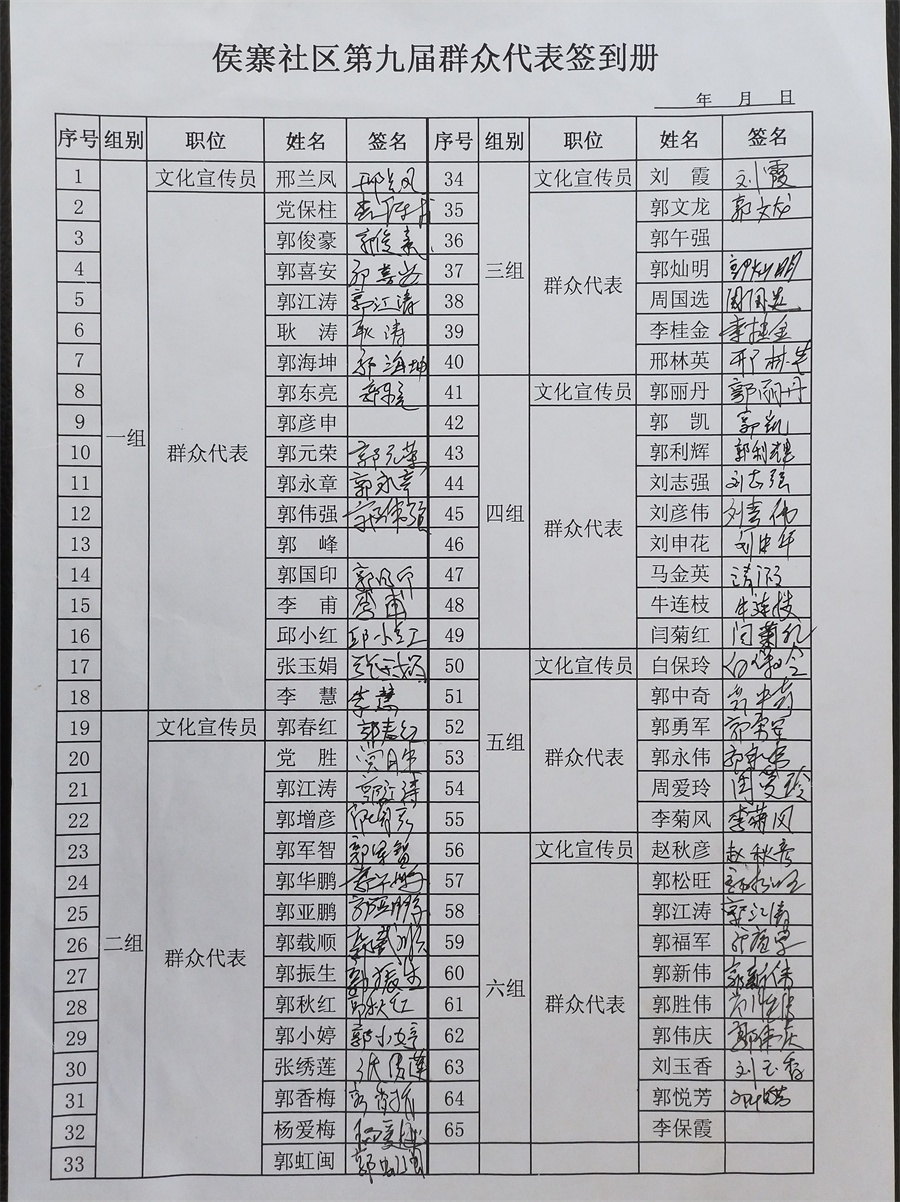 侯寨社区第九届群众代表签到册
年 月 日
序号 组别 职位 姓名 签名 序号 组别 职位 姓名 签名
1 文化宣传员 邢兰凤 邢兰凤 34 文化宣传员 刘 霞 刘霞
2 党保柱 35 郭文龙 郭文龙
3 郭俊豪 郭俊豪 36 郭午强
4 郭喜安 郭喜安 37 三组 群众代表 郭灿明 郭灿明
5 郭江涛 郭江涛 38 周国选 周国选
6 耿 涛 耿涛 39 李桂金 李桂金
7 郭海坤 郭海坤 40 邢林英 邢林英
8 郭东亮 郭东亮 41 文化宣传员 郭丽丹 郭丽丹
9 一组 郭彦申 42 郭 凯 郭凯
10 群众代表 郭元荣 郭元荣 43 郭利辉 郭利辉
11 郭永章 郭永章 44 刘志强 刘志强
12 郭伟强 郭伟强 45 四组 群众代表 刘彦伟 刘彦伟
13 郭 峰 46 刘申花 刘申花
14 郭国印 郭国印 47 马金英
15 李 甫 李甫 48 牛连枝 牛连枝
16 邱小红 邱小红 49 闫菊红 闫菊红
17 张玉娟 张玉娟 50 文化宣传员 白保玲
18 李 慧 李慧 51 郭中奇 郭中奇
19 文化宣传员 郭春红 郭春红 52 五组 郭勇军 郭勇军
20 党 胜 党胜 53 群众代表 郭永伟 郭永伟
21 郭江涛 郭江涛 54 周爱玲 周爱玲
22 郭增彦 55 李菊风 李菊风
23 郭军智 郭军智 56 文化宣传员 赵秋彦 赵秋彦
24 郭华鹏 郭华鹏 57 郭松旺 郭松旺
25 郭亚鹏 郭亚鹏 58 郭江涛 郭江涛
26 二组 群众代表 郭载顺 郭载顺 59 郭福军
27 郭振生 郭振生 60 六组 群众代表 郭新伟 郭新伟
28 郭秋红 郭秋红 61 郭胜伟
29 郭小婷 郭小婷 62 郭伟庆 郭伟庆
30 张绣莲 63 刘玉香 刘玉香
31 郭香梅 64 郭悦芳
32 杨爱梅 杨爱梅 65 李保霞
33 郭虹闽 郭虹闽